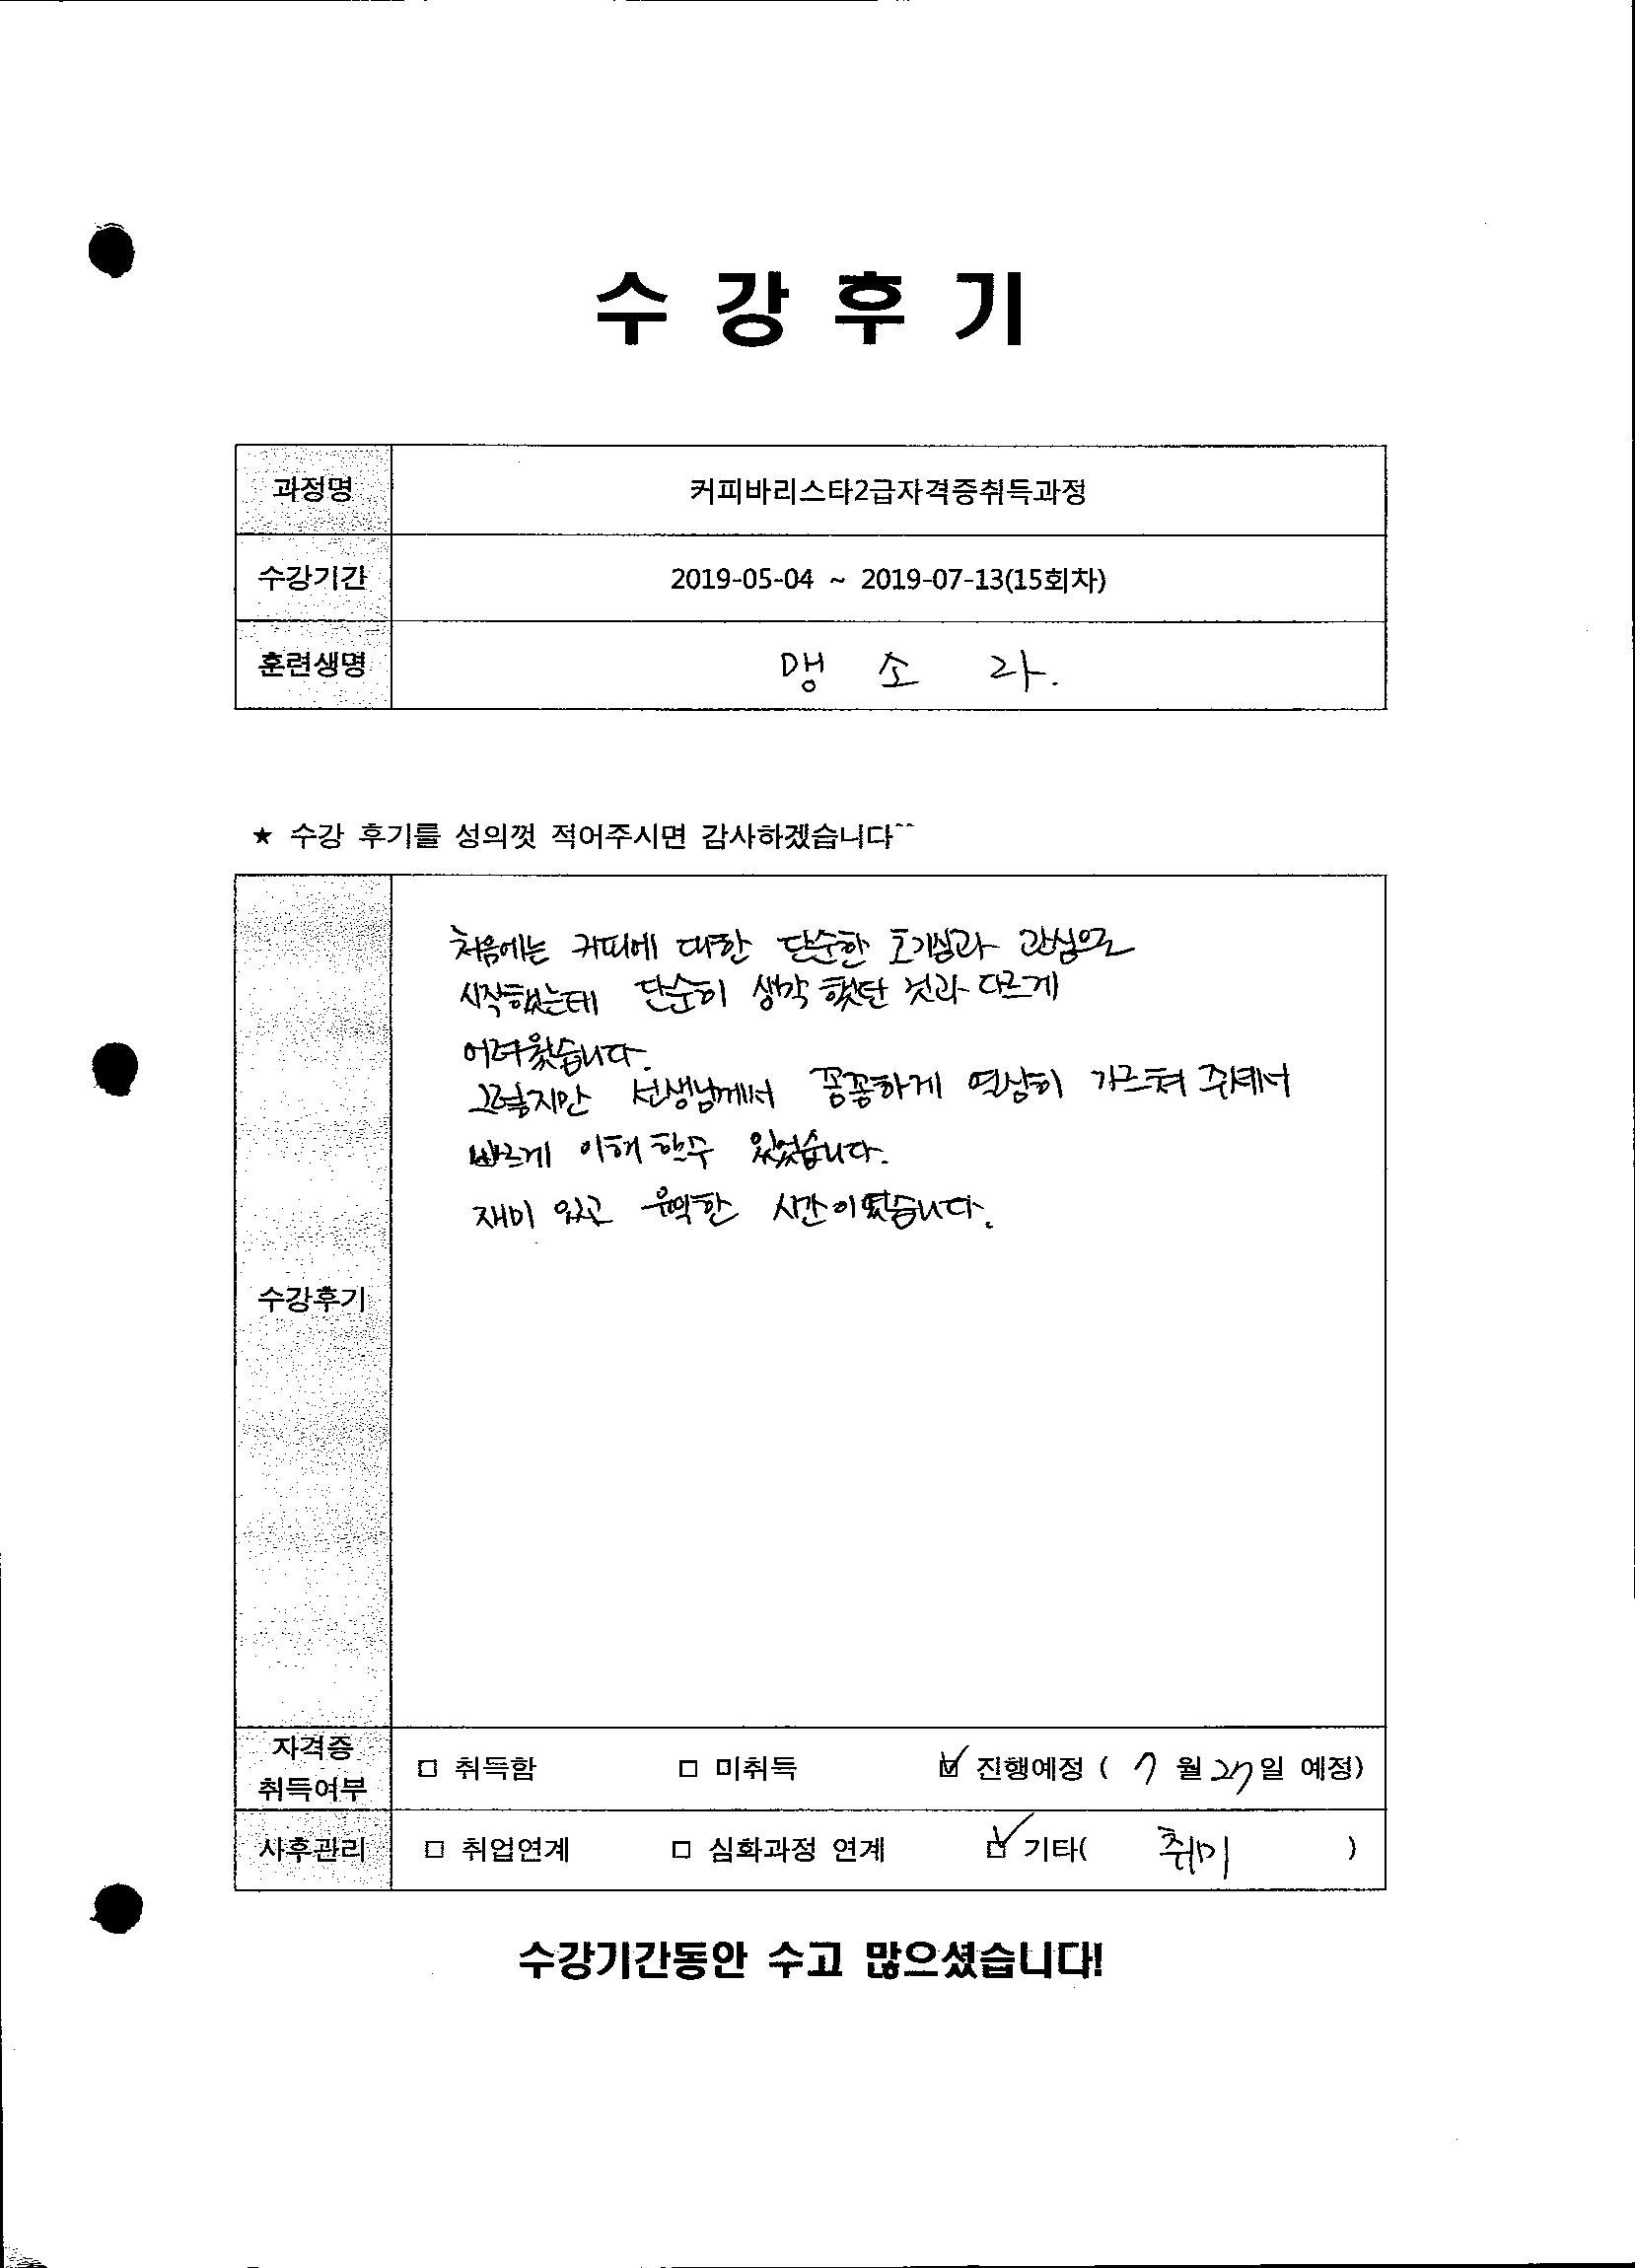 수 강 후 기
과정명 커피바리스타2급자격증취득과정
수강기간 2019-05-04 ~ 2019-07-13(15회차)
훈련생명 맹 소 라.
★ 수강 후기를 성의껏 적어주시면 감사하겠습니다^^
처음에는 커피에 대한 단순한 호기심과 관심으로
시작했는데 단순히 생각 했던 것과 다르게
어려웠습니다.
그렇지만 선생님께서 꼼꼼하게 열심히 가르쳐 주셔서
빠르게 이해 할수 있었습니다.
재미 있고 유익한 시간이였습니다.
수강후기
자격증
취득여부 □ 취득함 □ 미취득 ☑ 진행예정 ( 7 월 27 일 예정)
사후관리 □ 취업연계 □ 심화과정 연계 ☑ 기타( 취미 )
수강기간동안 수고 많으셨습니다!